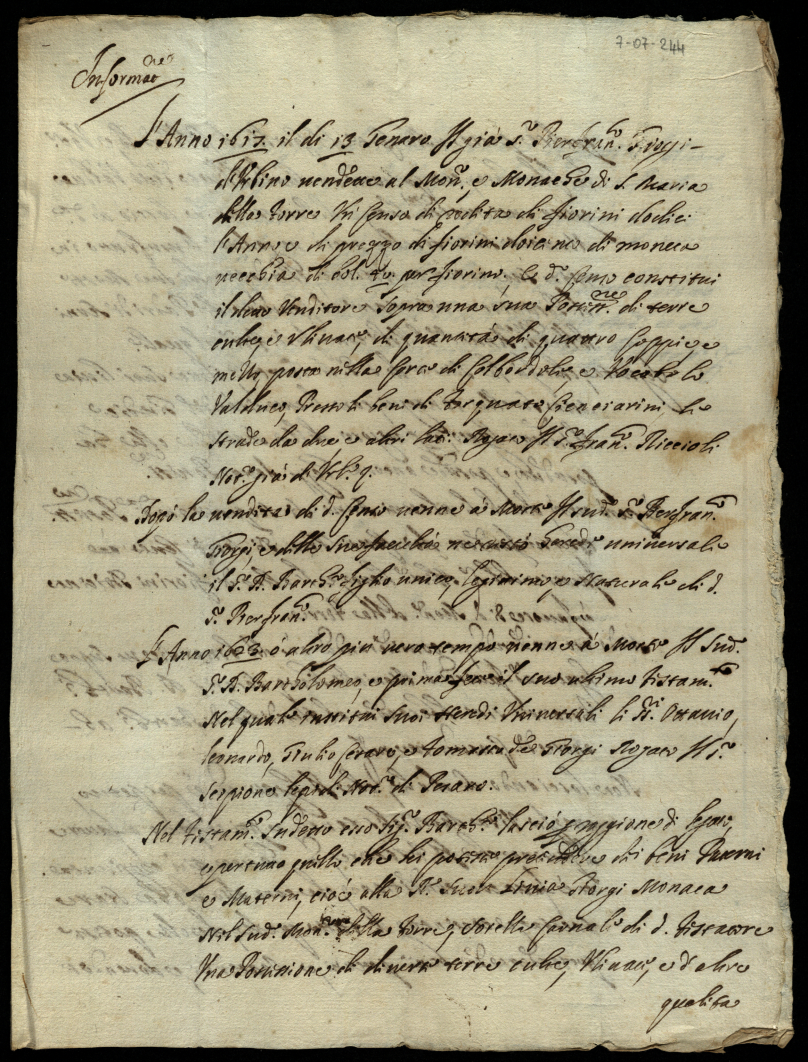 7-07-244
Informat.ne
L'Anno 1617 il di 13 Genaro il già S.r Berfran.co Giorgi
d'Urbino vendette al Mon.ro, e Monache di S. Maria
della Torre Un Censo di redita di fiorini dodici
l'Anno e di prezzo di fiorini di moneta
vecchia di bol. 40 per fiorino, e d.o Censo constitui
il detto Venditore sopra una sua Possess.ne di terre
culte e Ulivate, di quantità di quattro Coppie, e
mezza posta nella Corte di Colbordolo, e Vocabolo
Valduco, Presso li beni di Torquato Cenciarini, la
strada da due e altri lati Rogato il S.r Fran.co Riccioli
Not.o già di Urb.o
Dopò la vendita di d. Censo venne à Morte il sud. S.r Berfran.co
Giorgi, e della sua facultà ne restò herede universale
il S.r D. Barth.o figlio unico, legitimo, e Naturale di d.
S.r Berfran.co
L'Anno 1623 ò altro più vero tempo venne à Morte il Sud.
S.r D. Bartholomeo, e prima fece il suo ultimo Testam.to
Nel quale institui suoi Heredi Universali li SS.ri Ottavio,
Leonardo, Giulio Cesare, e Tomasso de Giorgi Rogato il S.r
Scipione Not.o di Pesaro.
Nel testam.to Sudetto esso Sig.r Barth.o lasciò p ragione di legato,
e per tutto quello che lei potesse pretendere di beni Paterni
e Materni, cioè alla R. Suor Livia Giorgi Monaca
Nel Sud. Mon.ro della Torre, Sorella Carnale di d. Testatore
Una Possessione di diverse terre culte, Ulivate, e d'altre
qualita